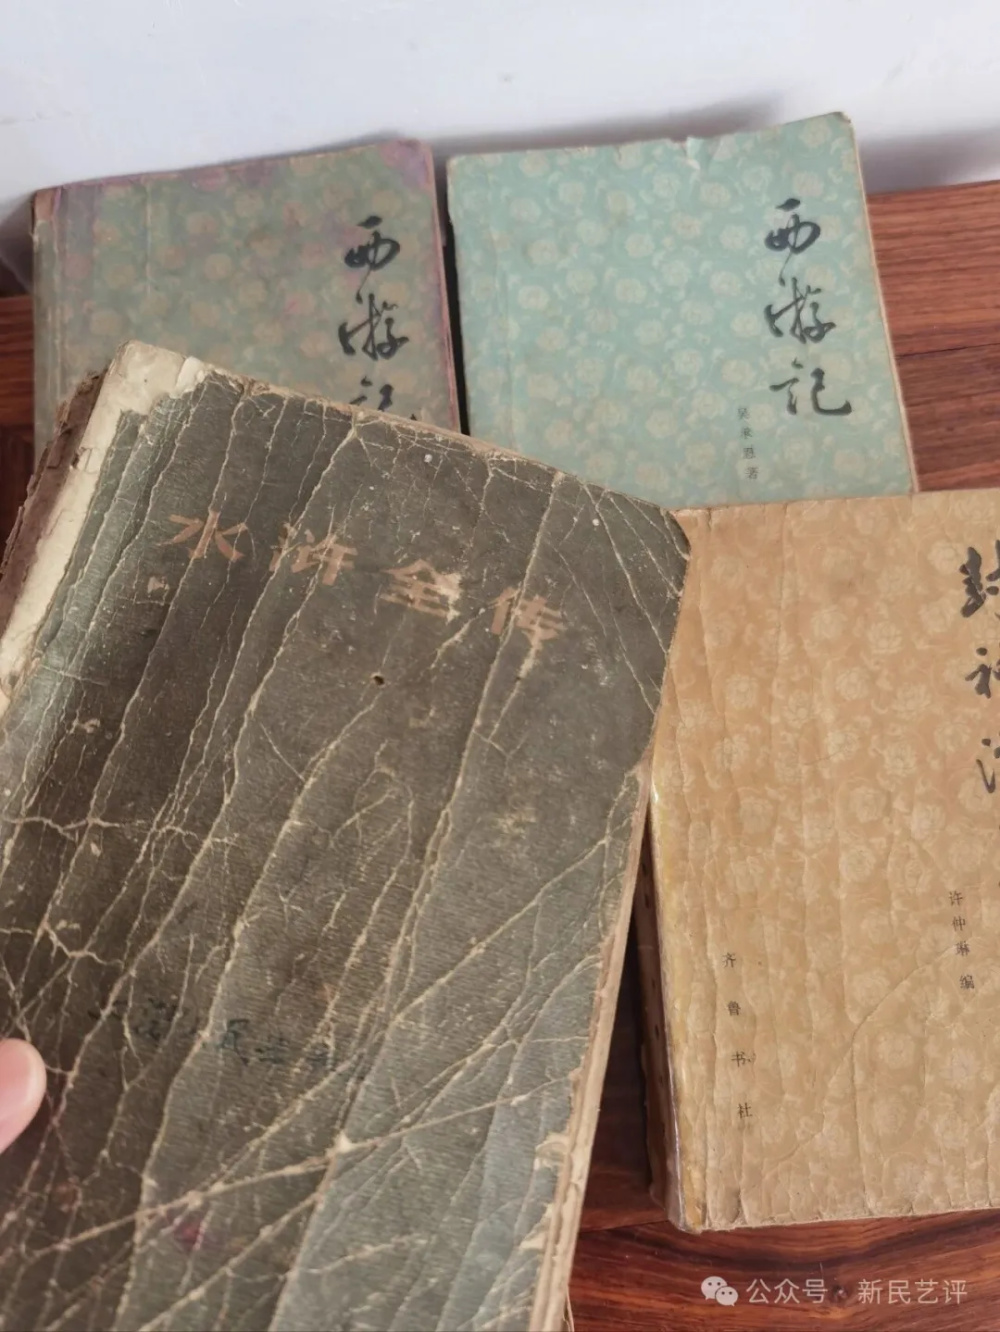 西游记
西游记
吴承恩著
水浒全传
封神演
许仲琳编
齐鲁书社
公众号·新民艺评